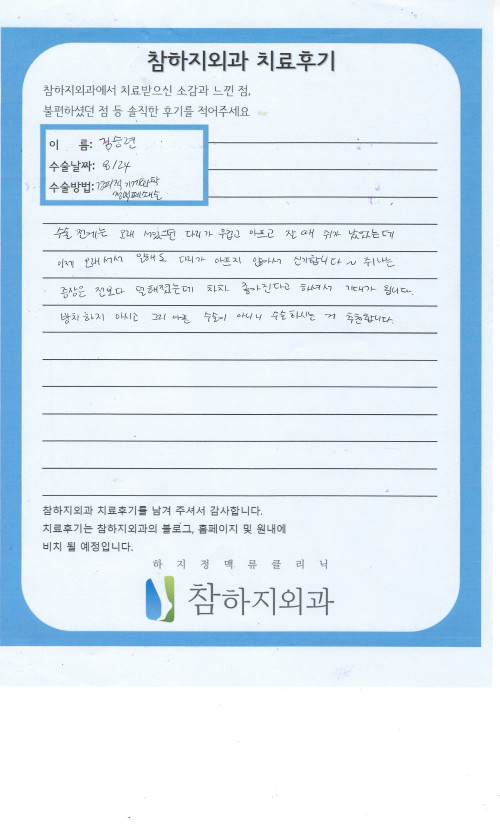 참하지외과 치료후기
참하지외과에서 치료받으신 소감과 느낀 점,
불편하셨던 점 등 솔직한 후기를 적어주세요
이 름: 김승련
수술날짜: 8/24
수술방법: 경피적 기계화학
정맥폐쇄술
수술 전에는 오래 서있으면 다리가 무겁고 아프고 잘 때 쥐가 났었는데
이제 오래 서서 일해도 다리가 아프지 않아서 신기합니다~ 쥐나는
증상은 전보다 덜해졌는데 차차 좋아진다고 하셔서 기대가 됩니다.
방치하지 마시고 그리 아픈 수술이 아니니 수술하시는 거 추천합니다.
참하지외과 치료후기를 남겨 주셔서 감사합니다.
치료후기는 참하지외과의 블로그, 홈페이지 및 원내에
비치 될 예정입니다.
하지정맥류클리닉
참하지외과